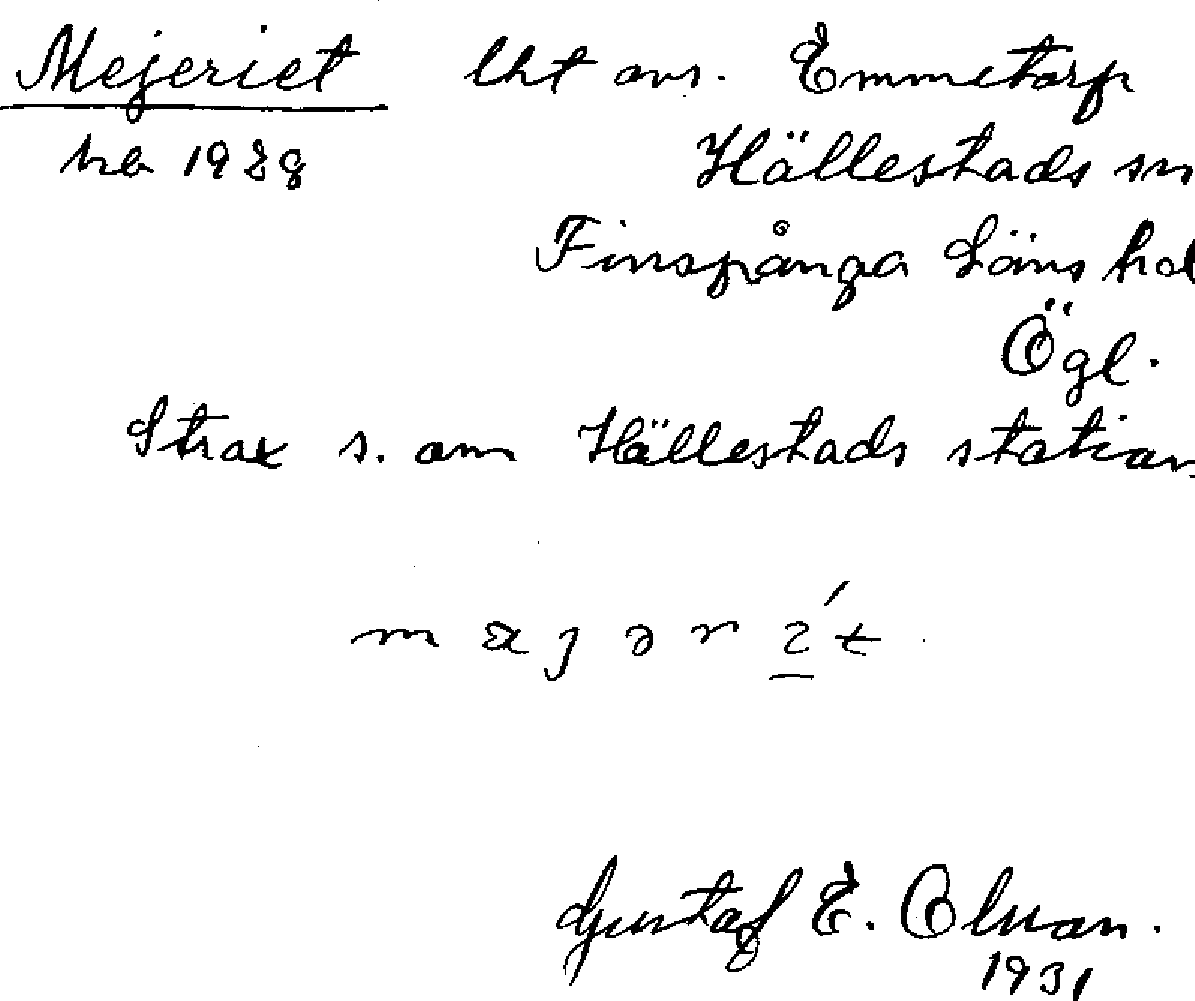 Mejeriet lht avs. Emmetorp
Hällestads sn
Finspånga Läns hd
Ögl.
Strax s. om Hällestads station
Gustaf E. Olsson.
1931